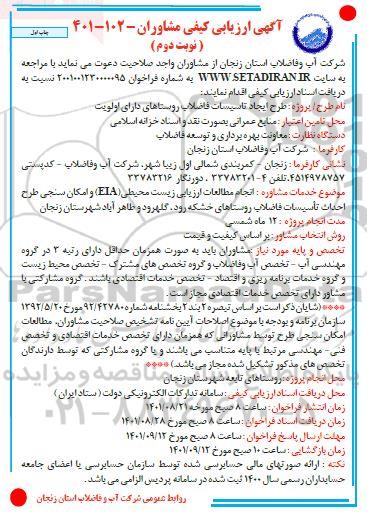 آگهی ارزیابی کیفی مشاوران - ۱۰۲-۴۰۱
( نوبت دوم )
چاپ اول
شرکت آب وفاضلاب استان زنجان از مشاوران واجد صلاحیت دعوت می نماید با مراجعه
به سایت WWW.SETADIRAN.IR به شماره فراخوان ۲۰۰۱۰۰۱۲۳۰۰۰۰۰۹۵ نسبت به
دریافت اسناد ارزیابی کیفی اقدام نمایند:
نام طرح/ پروژه : طرح ایجاد تاسیسات فاضلاب روستاهای دارای اولویت
محل تامین اعتبار : منابع عمرانی بصورت نقد و اسناد خزانه اسلامی
دستگاه نظارت : معاونت بهره برداری و توسعه فاضلاب
کارفرما : شرکت آب وفاضلاب استان زنجان
نشانی کارفرما : زنجان - کمربندی شمالی اول زیبا شهر، شرکت آب وفاضلاب - کدپستی
۴۵۱۴۹۷۸۷۵۷، تلفن ۴-۳۳۷۸۳۲۰۱ ، دورنگار ۳۳۷۸۳۲۱۶
موضوع خدمات مشاوره : انجام مطالعات ارزیابی زیست محیطی(EIA) و امکان سنجی طرح
احداث تأسیسات فاضلاب روستاهای خشکه رود، گلهرود و طاهر آباد شهرستان زنجان
مدت انجام پروژه : ۱۲ ماه شمسی
روش انتخاب مشاور : بر اساس کیفیت و قیمت
تخصص و پایه مورد نیاز :مشاوران باید به صورت همزمان حداقل دارای رتبه ۳ در گروه
مهندسی آب - تخصص آب وفاضلاب و گروه تخصص های مشترک - تخصص محیط زیست
و گروه خدمات برنامه ریزی و اقتصاد - تخصص خدمات اقتصادی باشند. گروه مشارکتی با
مشاور دارای تخصص خدمات اقتصادی مجاز است.
****(شایان ذکر است بر اساس تبصره ۲ بند ۲ بخشنامه شماره ۹۲/۴۲۷۸۰ مورخ ۱۳۹۲/۵/۲۰
سازمان برنامه و بودجه با موضوع اصلاحات آیین نامه تشخیص صلاحیت مشاوران، مطالعات
امکان سنجی طرح توسط مشاورانی که همزمان دارای تخصص خدمات اقتصادی و تخصص
فنی- مهندسی مرتبط با پایه متناسب می باشند و یا گروه مشارکتی که توسط دارندگان
تخصص های مذکور تشکیل شده مجاز می باشد.)****
محل انجام پروژه :روستاهای تابعه شهرستان زنجان
محل دریافت اسناد ارزیابی کیفی : سامانه تدارکات الکترونیکی دولت ( ستاد ایران )
زمان انتشار فراخوان : ساعت ۸ صبح مورخه ۱۴۰۱/۰۸/۲۳
زمان دریافت اسناد فراخوان : ساعت ۸ صبح مورخ ۱۴۰۱/۰۸/۲۸
مهلت ارسال پاسخ فراخوان : ساعت ۸ صبح مورخ ۱۴۰۱/۰۹/۱۲
زمان بازگشایی : ساعت ۱۰ صبح مورخ ۱۴۰۱/۰۹/۱۲
نکته : ارائه صورتهای مالی حسابرسی شده توسط سازمان حسابرسی یا اعضای جامعه
حسابداران رسمی سال ۱۴۰۰ ثبت شده در سامانه پردیس الزامی می باشد.
روابط عمومی شرکت آب و فاضلاب استان زنجان